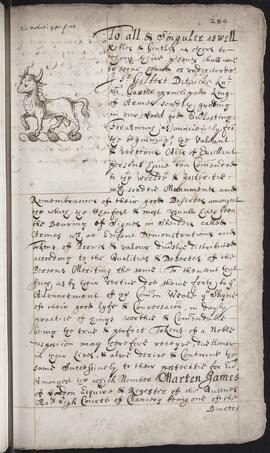 284
To all & Singuler aswell
Nobles & Gentles as others to
whom these presents shall come
to be seene heard or understood
Sr Gilbert Dethicke Knt
als Garter principall King
of Armes send greeting
in our Lord god Everlasting
Forasmuch as aunciently fro
the beginning the Valiant
& vertuous Acts of Excellent
Persons have ben Comended
to the worlde & posteritie
with sondrie Monuments and
Remembrances of their good Deserts amongst
the which the chiefest & most usuall hath ben
the Bearing of Signes in shields called
Armes which are Evident Demonstrations and
Tokens of prowes & valour diversly distributed
according to the Qualities & Deserts of the
Persons Meriting the same To th'entent that
such as by their vertue doe shewe forth to the
Advancement of the Comon Weale & Shyne
of their good lyfe & Conversacion in dayly
practice of things worthie & Comendable
being the true & perfect Tokens of a Noble
disposicion may therefore receyve due Honor
in their lives, & also derive & Continue the
same Successively to their posteritie for Ever
Amongst the which Number Marten James
of London Esquire & Register of the Queenes
Mats high Courte of Chancery being one of the
Bearers